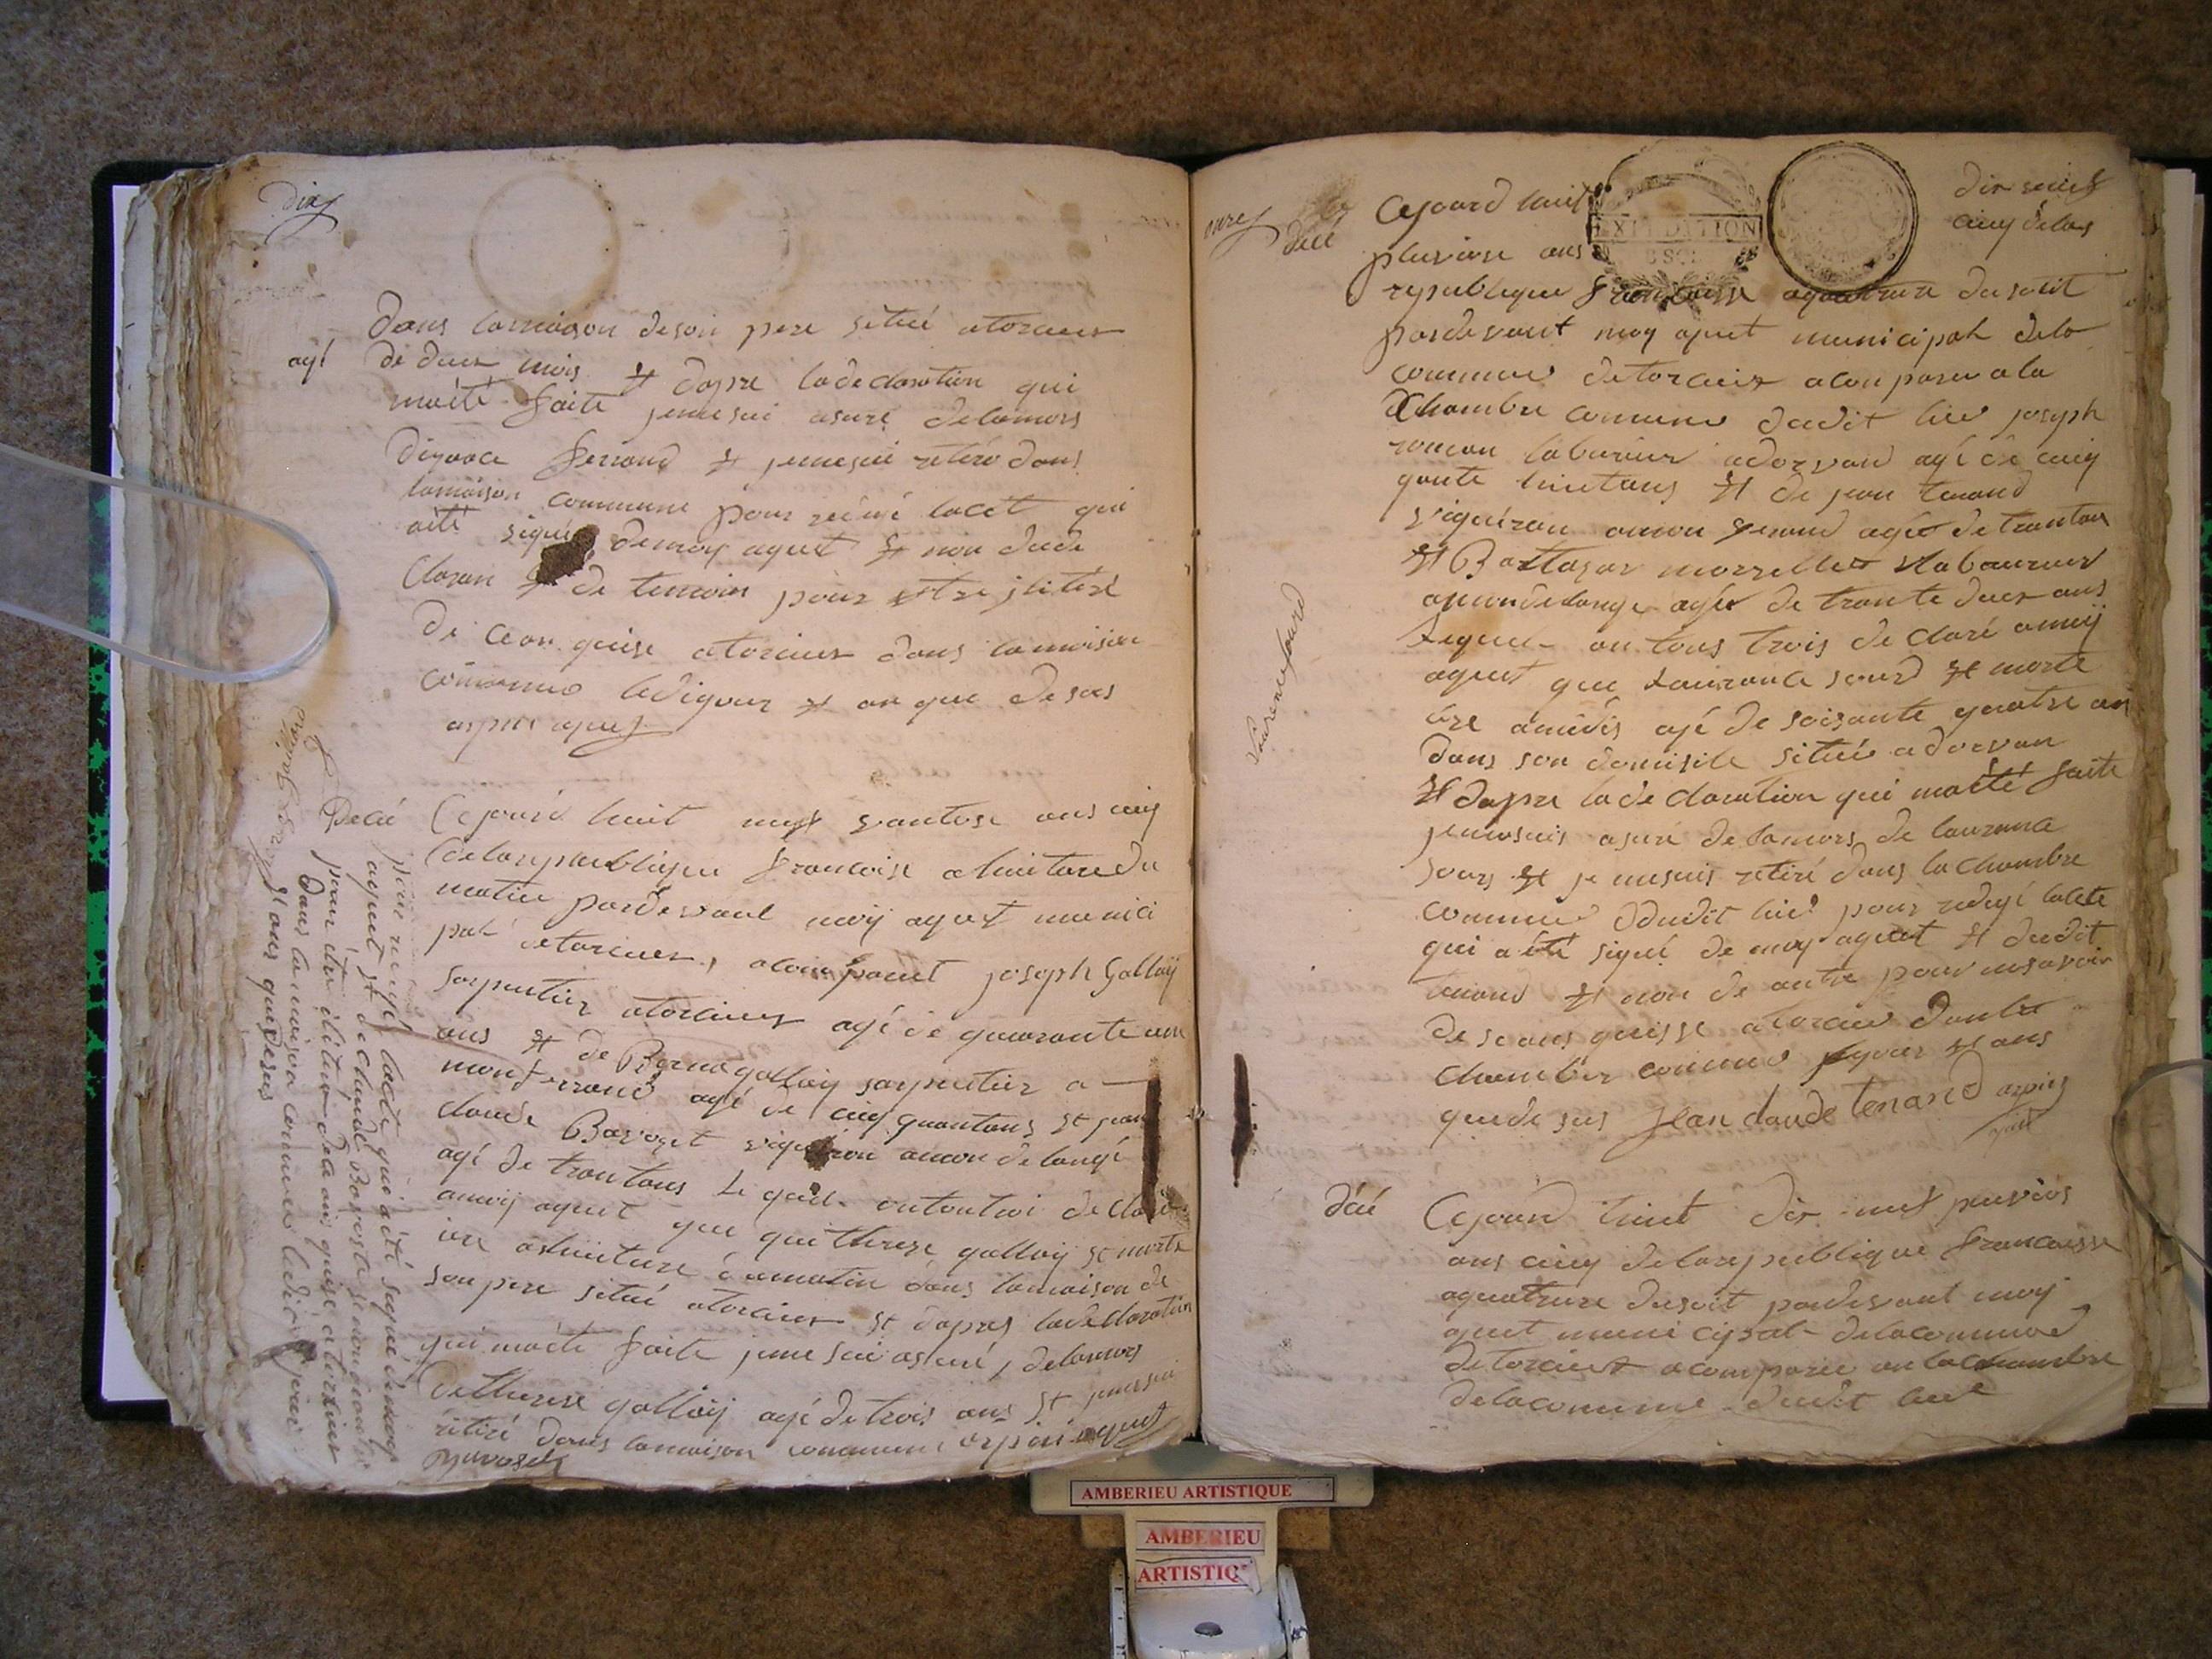 dix
dans lamaison deson pere situé atorcieu
agé de deux mois et dapre ladeclaration qui
maété faite jemesui asuré delamors
ferrand et jemesui retiré dans
lamaison commune pour lacet qui
aété signé demoy agent et non dude
claran et de temoin pour etre jlitéré
de ceon quise atorcieu dans lamaison
commune ledijour et an que desus
arpin agent
Décé Cejourd huit neuf vantose ans cinq
delarepublique francoise ahuiture du
matin pardevant moij agent munici
pal detorcieu, joseph Gallay
sarpentier atorcieu agé de quarante un
ans et de gallaij sarpentier a
monferrand agé de cinquantans et jean
claude Bavoset vigniron amon delangé
agé de trantans le quel ontoutroi declaré
amoij agent que quitherese gallaij et morte
ier ahuiture dumatin dans lamaison de
son pere situé atorcieu et dapres ladeclaration
qui maété faite jeme sui asuré, delamors
detherese gallaij agé de trois ans et jemesui
rétiré dans lamaison commune arpin agent
Bavoset
pour rédigé lacte qui aété signé demoy
agent et de claude Bavoset
pour être ilitéré dece ans quise atorcieu
dans lamaison commune ledit jour
et ans que desus
onze
décé Cejourd huit dix seuit
pluviose ans cinq delas
EXPEDITION
republique francoise aquatrure dusoit
pardevant moy agent municipal dela
commune detorcieu acomparu ala
chambre comune dudit lieu joseph
roman labureur adorvan agé de cinq
quante huitans et de jean tenand
vigniron amon ferrand agé de trantan
et Baltasar laboureur
amondelange agé de trante deux ans
lequel on tous trois de claré amoij
agent que Laurance sourd et morte
ier amidis agé de soisante quatre an
dans son domisile situé adorvan
et dapre lade claration qui maété faite
jemesuis asuré delamors de laurance
sours et je mesuis retiré dans lachambre
commune dudit lieu pour redigé lacte
qui a été signé de moy agent et dudit
tenand et non de autre pour nesavoir
de seans quisse atorcieu danla
chamber comune jour et ans
quede sus jean claude tenand arpin
agent
Laurence sourd
décé Cejourd huit dix neuf pluvios
ans cinq delarepublique francoisse
aquatrure dusoit pardevant moij
agent municipal delacommune
detorcieu acomparu an lachambre
delacomune dudit lieu
AMBERIEU ARTISTIQUE
AMBERIEU
ARTISTIQ